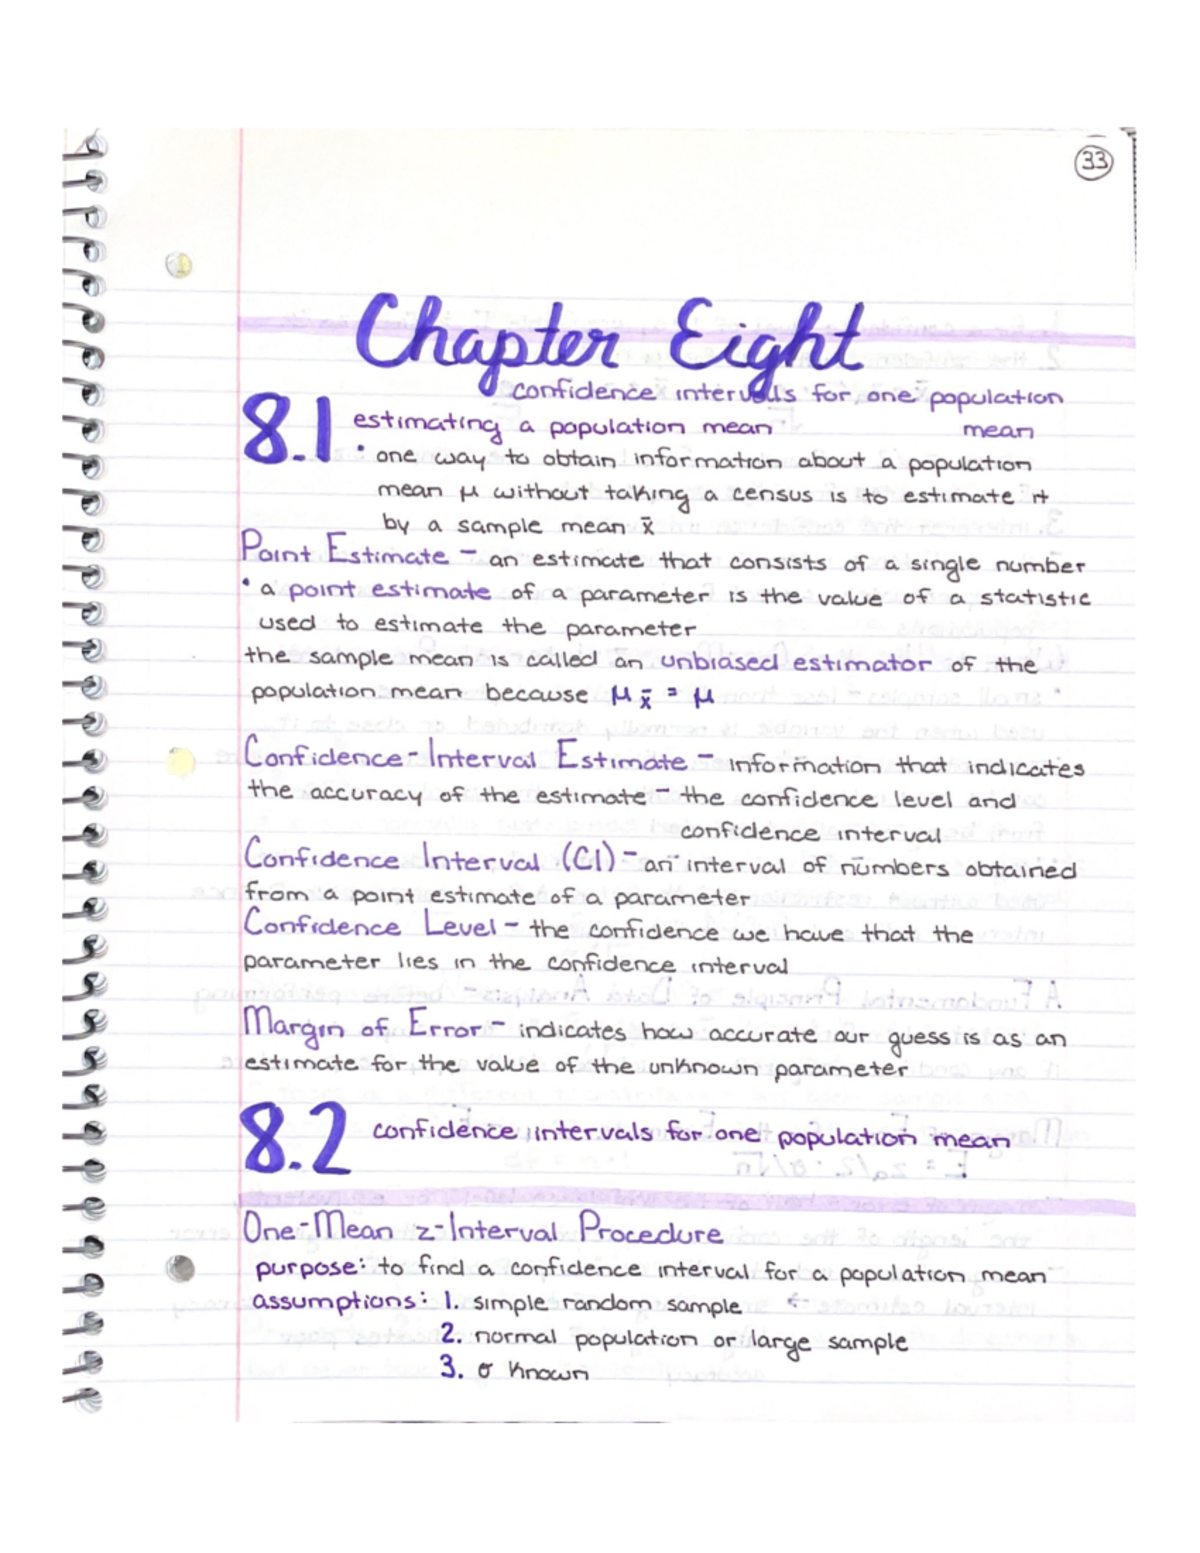 33
Chapter Eight
confidence intervals for one population
mean
8.1 estimating a population mean
• one way to obtain information about a population
mean μ without taking a census is to estimate it
by a sample mean x̄
Point Estimate - an estimate that consists of a single number
• a point estimate of a parameter is the value of a statistic
used to estimate the parameter
the sample mean is called an unbiased estimator of the
population mean because μx̄ = μ
Confidence-Interval Estimate - information that indicates
the accuracy of the estimate - the confidence level and
confidence interval
Confidence Interval (CI) - an interval of numbers obtained
from a point estimate of a parameter
Confidence Level - the confidence we have that the
parameter lies in the confidence interval
Margin of Error - indicates how accurate our guess is as an
estimate for the value of the unknown parameter
8.2 confidence intervals for one population mean
One-Mean z-Interval Procedure
purpose: to find a confidence interval for a population mean
assumptions: 1. simple random sample
2. normal population or large sample
3. σ known